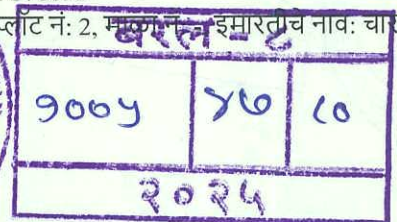 प्लॉट नं: 2, माळा नं: , इमारतीचे नाव:
बरल - ८
१००५ ४७ ८०
२०२५